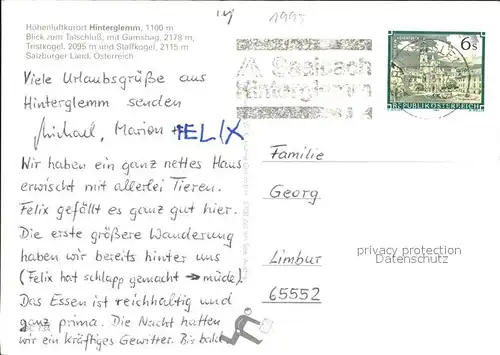 Höhenluftkurort Hinterglemm, 1100 m
Blick zum Talschluß, mit Gamshag, 2178 m,
Tristkogel, 2095 m und Staffkogel, 2115 m
Salzburger Land, Österreich
1995
Saalbach
Hinterglemm
6 s
REPUBLIK ÖSTERREICH
Viele Urlaubsgrüße aus
Hinterglemm senden
Michael, Marion + FELIX
Wir haben ein ganz nettes Haus
erwischt mit allerlei Tieren.
Felix gefällt es ganz gut hier.
Die erste größere Wanderung
haben wir bereits hinter uns
(Felix hat schlapp gemacht → müde).
Das Essen ist reichhaltig und
ganz prima. Die Nacht hatten
wir ein kräftiges Gewitter. Bis bald
Familie
Georg
Limbur
65552
privacy protection
Datenschutz